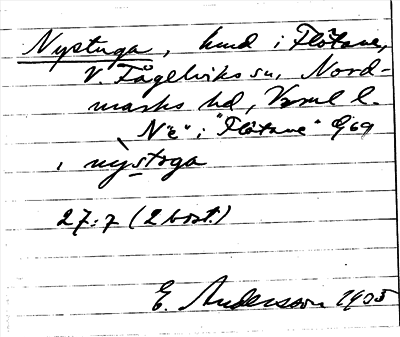 Nystuga, hmd i Flötane,
V. Fågelviks sn, Nord-
marks hd, Vrml l.
N"e" i "Flötane" Gj69
i nỳstoga
27:7 (2 bost.)
E. Andersson 1905